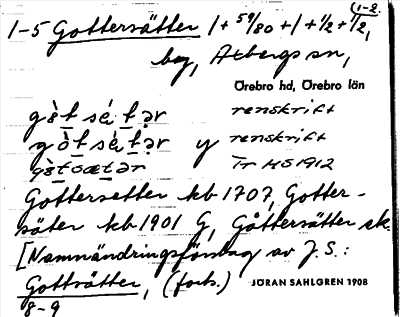 (1-2.
1-5 Gottersätter 1 + 59/80 + 1 + 1/2 + 1/2,
by, Axbergs sn,
Örebro hd, Örebro län
gòt sè̀ t ər renskrift
gòt sè̀ t ər y renskrift
gòtsætər Tr HS 1912
Gottersetter kb 1707, Gotter-
säter kb 1901 G, Gåttersätter sk.
[Namnändringsförslag av J.S.:
Gottsätter, (forts.) JÖRAN SAHLGREN 1908
8-9